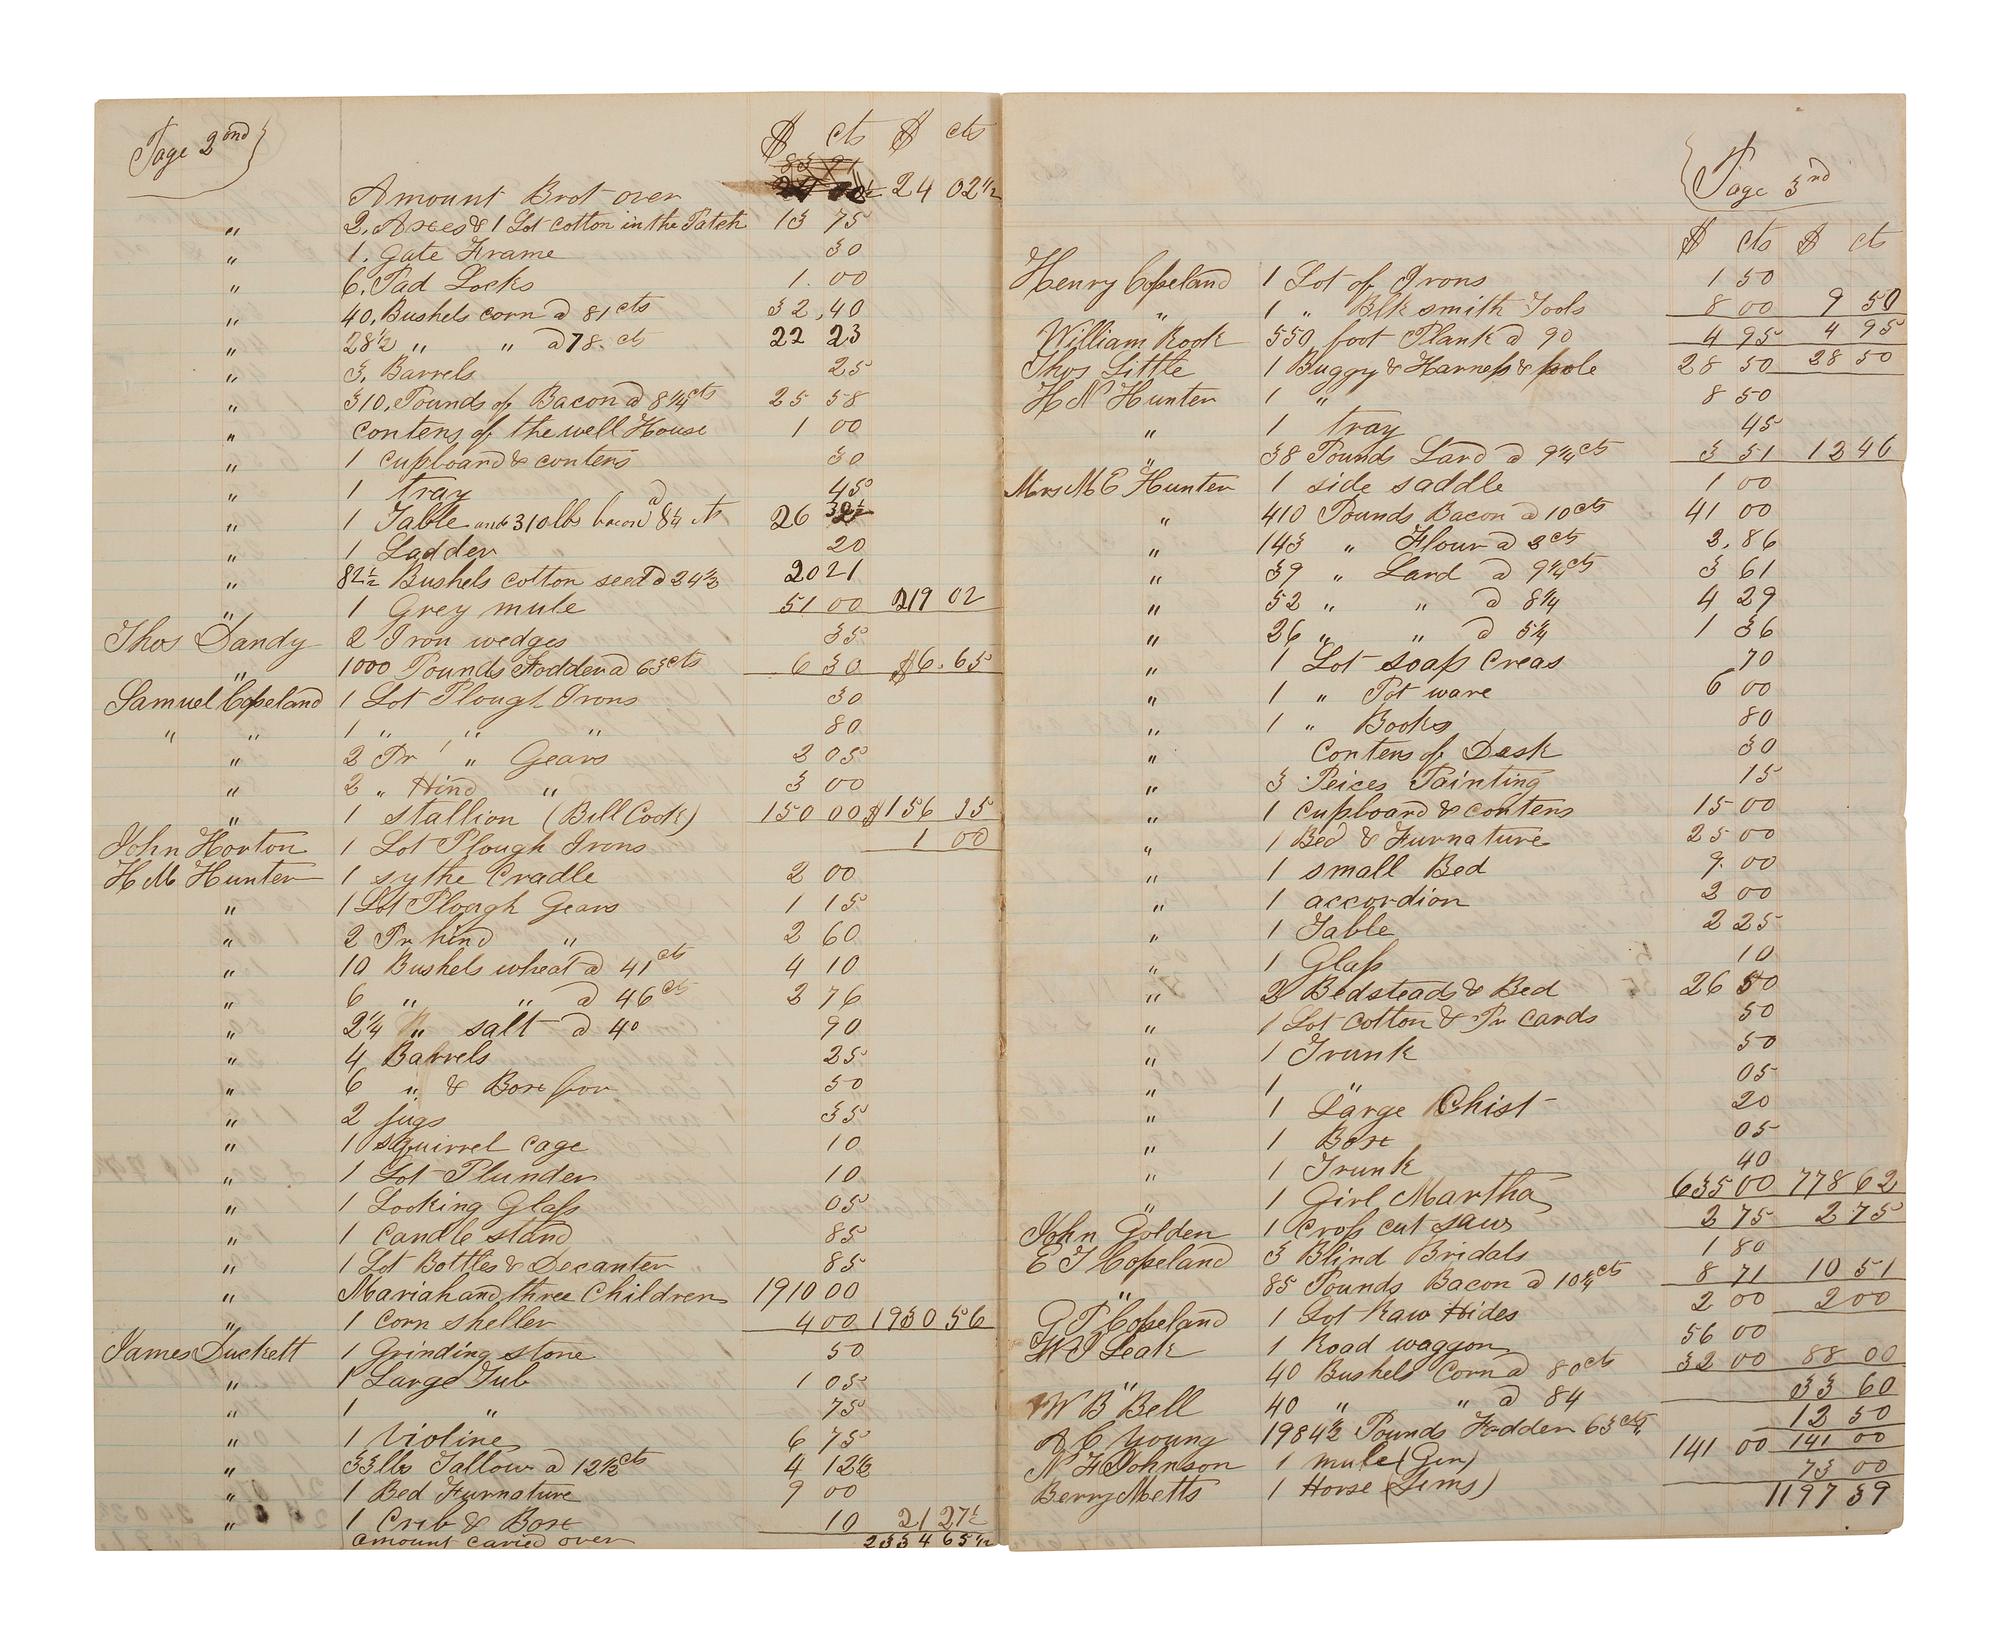 Page 2nd
$ cts $ cts
Amount Brot over 24 02½
" 2, Axes & 1 Lot cotton in the Patch 13 75
" 1, Gate Frame 30
" 6, Pad Locks 1.00
" 40, Bushels corn @ 81 cts 32,40
" 28½ " " @ 78. cts 22 23
" 3, Barrels 25
" 310, Pounds of Bacon @ 8¼ cts 25 58
" contens of the well House 1 00
" 1 cupboard & contens 30
" 1 tray 45
" 1 Table and 310 lbs bacon @ 8¼ cts 26
" 1 Ladder 20
" 82½ Bushels cotton seed @ 24½ 20 21
" 1 Grey mule 51 00 219 02
Thos Dandy 2 Iron wedges 35
" 1000 Pounds Fodder @ 63 cts 6 30 $6.65
Samuel Copeland 1 Lot Plough Irons 30
" " 1 " " " 80
" 2 Pr " Gears 2 05
" 2 " Hind " 3 00
" 1 stallion (Bill Cook) 150 00 $156 35
John Horton 1 Lot Plough Irons 1 00
H M Hunter 1 sythe Cradle 2 00
" 1 Lot Plough Gears 1 15
" 2 Pr hind " 2 60
" 10 Bushels wheat @ 41 cts 4 10
" 6 " " @ 46 cts 2 76
" 2¼ " salt @ 40 90
" 4 Barrels 25
" 6 " & Box for 50
" 2 jugs 35
" 1 squirrel cage 10
" 1 Lot Plunder 10
" 1 Looking Glass 05
" 1 Candle stand 85
" 1 Lot Bottles & Decanter 85
" Mariah and three Children 1910 00
" 1 corn sheller 4 00 1930 56
James Duckett 1 Grinding stone 50
" 1 Large Tub 1 05
" 1 " 75
" 1 Violine 6 75
" 33 lbs Tallow @ 12½ cts 4 12½
" 1 Bed Furnature 9 00
" 1 Crib & Box 10 21 27½
amount caried over 2334 65½
Page 3rd
$ cts $ cts
Henry Copeland 1 Lot of Irons 1 50
" 1 " Blk smith Tools 8 00 9 50
William Rook 550 foot Plank @ 90 4 95 4 95
Thos Little 1 Buggy & Harness & pole 28 50 28 50
H N Hunter 1 " 8 50
" 1 tray 45
" 38 Pounds Lard @ 9¼ cts 3 51 12 46
Mrs M E Hunter 1 side saddle 1 00
" 410 Pounds Bacon @ 10 cts 41 00
" 143 " Flour @ 2 cts 2,86
" 39 " Lard @ 9¼ cts 3 61
" 52 " " @ 8¼ 4 29
" 26 " " @ 5¼ 1 36
" 1 Lot soap Creas 70
" 1 " Pot ware 6 00
" 1 " Books 80
" Contens of Desk 30
" 3 Peices Painting 15
" 1 cupboard & contens 15 00
" 1 Bed & Furnature 25 00
" 1 small Bed 9.00
" 1 accordion 2 00
" 1 Table 2 25
" 1 Glass 10
" 2 Bedsteads & Bed 26 50
" 1 Lot Cotton & Pr Cards 50
" 1 Trunk 50
" 1 " 05
" 1 Large Chist 20
" 1 Box 05
" 1 Trunk 40
" 1 Girl Martha 635 00 778 62
John Golden 1 Cross cut saws 2 75 2 75
E T Copeland 3 Blind Bridals 1 80
" 85 Pounds Bacon @ 10¼ cts 8 71 10 51
G P Copeland 1 Lot Raw Hides 2 00 2 00
W P Leak 1 Road waggon 56 00
" 40 Bushels Corn @ 80 cts 32 00 88 00
W B Bell 40 " " @ 84 33 60
A C Young 1984½ Pounds Fodder 63 cts 12 50
N F Johnson 1 mule (Gin) 141 00 141 00
Berry Metts 1 Horse (Sims) 73 00
1197 39